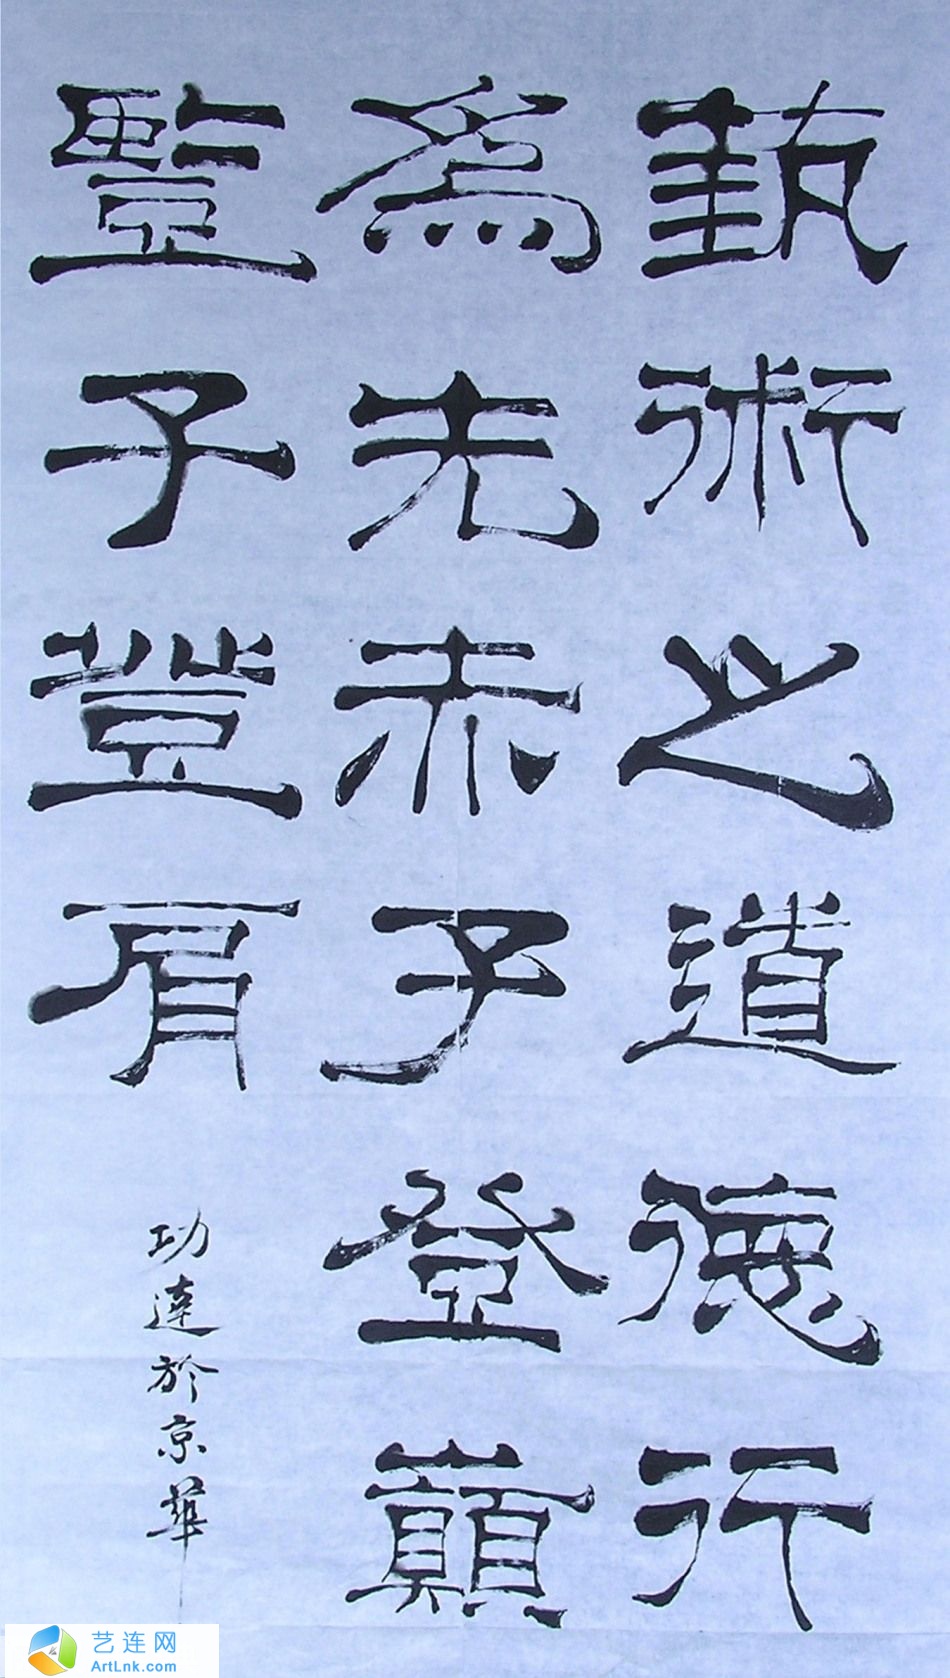 埶術之道德行
爲先赤子登巔
豎子豈肩
功達於京華
艺连网
ArtLnk.com